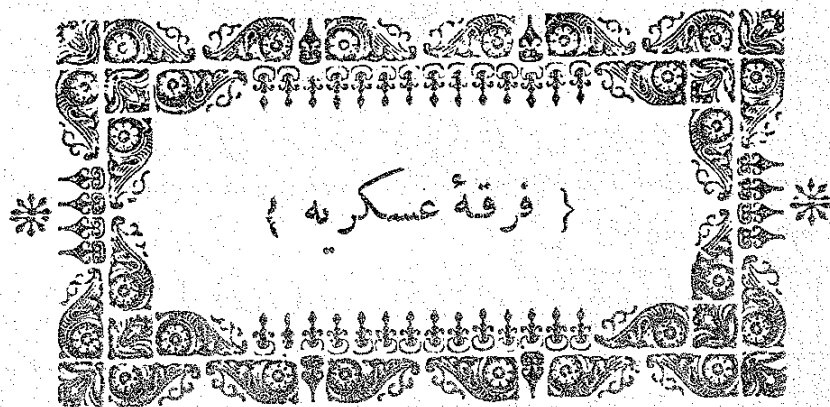 ﴿ فرقهٔ عسكريه ﴾